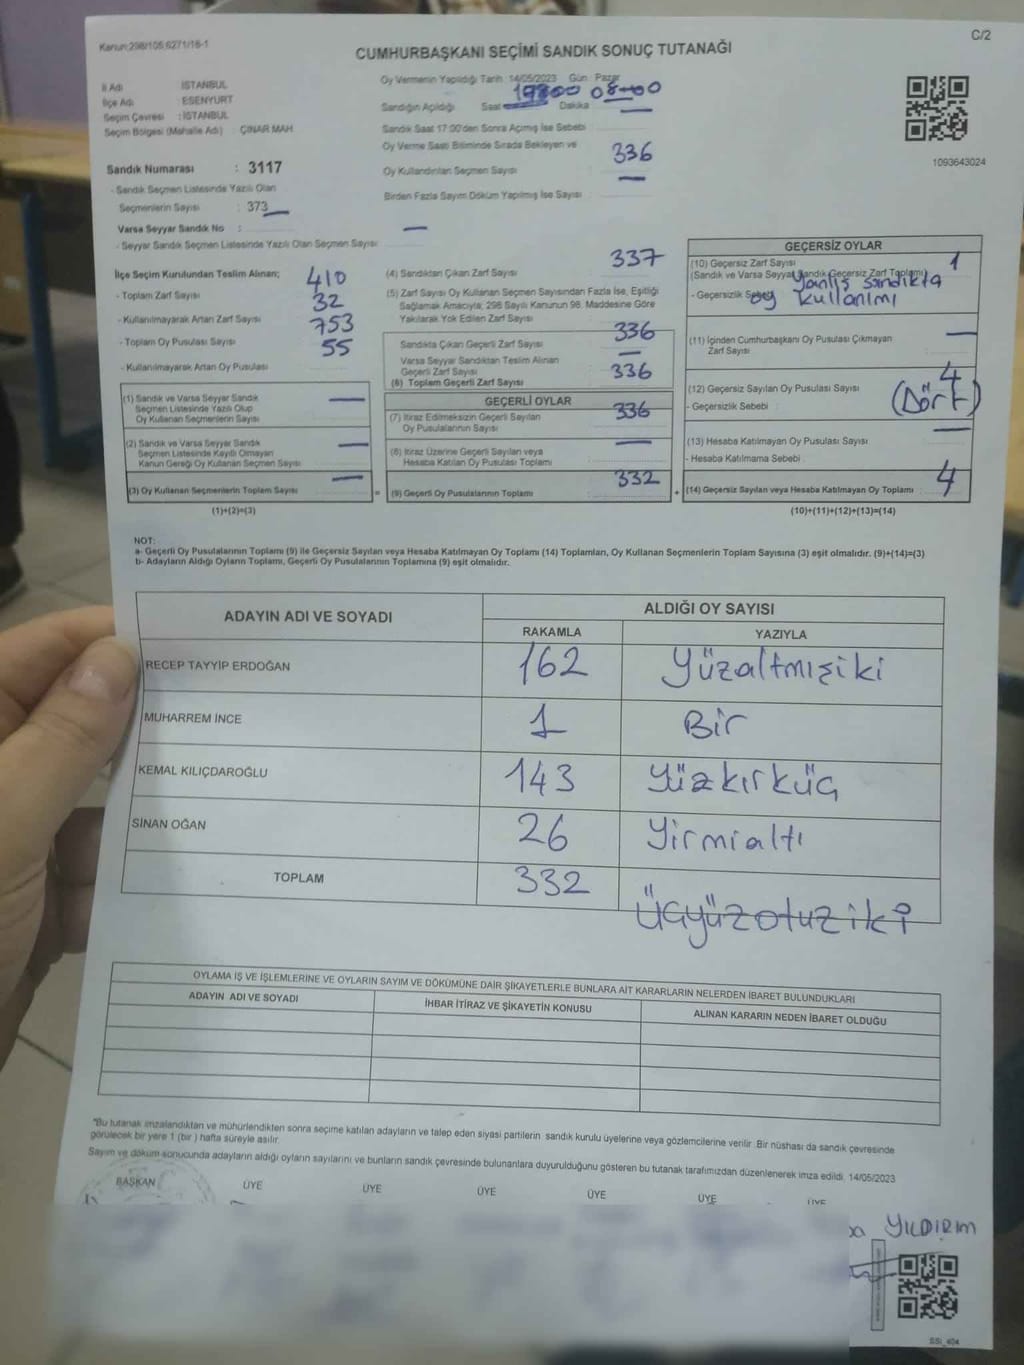 Kanun:298/105,6271/18-1
C/2
CUMHURBAŞKANI SEÇİMİ SANDIK SONUÇ TUTANAĞI
İl Adı : İSTANBUL
İlçe Adı : ESENYURT
Seçim Çevresi : İSTANBUL
Seçim Bölgesi (Mahalle Adı) : ÇINAR MAH
Sandık Numarası : 3117
- Sandık Seçmen Listesinde Yazılı Olan
Seçmenlerin Sayısı : 373
Varsa Seyyar Sandık No :
- Seyyar Sandık Seçmen Listesinde Yazılı Olan Seçmen Sayısı
Oy Vermenin Yapıldığı Tarih 14/05/2023 Gün : Pazar
Sandığın Açıldığı Saat Dakika 08-00
Sandık Saat 17:00'den Sonra Açılmış İse Sebebi
Oy Verme Saati Bitiminde Sırada Bekleyen ve
Oy Kullandırılan Seçmen Sayısı 336
Birden Fazla Sayım Döküm Yapılmış İse Sayısı —
1093643024
İlçe Seçim Kurulundan Teslim Alınan;
- Toplam Zarf Sayısı 410
- Kullanılmayarak Artan Zarf Sayısı 32
- Toplam Oy Pusulası Sayısı 753
- Kullanılmayarak Artan Oy Pusulası 55
(1) Sandık ve Varsa Seyyar Sandık —
Seçmen Listesinde Yazılı Olup
Oy Kullanan Seçmenlerin Sayısı
(2) Sandık ve Varsa Seyyar Sandık —
Seçmen Listesinde Kayıtlı Olmayan
Kanun Gereği Oy Kullanan Seçmen Sayısı
(3) Oy Kullanan Seçmenlerin Toplam Sayısı —
(1)+(2)=(3)
(4) Sandıktan Çıkan Zarf Sayısı 337
(5) Zarf Sayısı Oy Kullanan Seçmen Sayısından Fazla İse, Eşitliği
Sağlamak Amacıyla; 298 Sayılı Kanunun 98. Maddesine Göre
Yakılarak Yok Edilen Zarf Sayısı
Sandıkta Çıkan Geçerli Zarf Sayısı 336
Varsa Seyyar Sandıktan Teslim Alınan —
Geçerli Zarf Sayısı
(6) Toplam Geçerli Zarf Sayısı 336
GEÇERLİ OYLAR
(7) İtiraz Edilmeksizin Geçerli Sayılan 336
Oy Pusulalarının Sayısı
(8) İtiraz Üzerine Geçerli Sayılan veya —
Hesaba Katılan Oy Pusulası Toplamı
(9) Geçerli Oy Pusulalarının Toplamı 332
GEÇERSİZ OYLAR
(10) Geçersiz Zarf Sayısı 1
(Sandık ve Varsa Seyyar Sandık Geçersiz Zarf Toplamı)
- Geçersizlik Sebebi Yanlış sandıkta
oy kullanımı
(11) İçinden Cumhurbaşkanı Oy Pusulası Çıkmayan —
Zarf Sayısı
(12) Geçersiz Sayılan Oy Pusulası Sayısı 4
- Geçersizlik Sebebi : (Dört)
(13) Hesaba Katılmayan Oy Pusulası Sayısı —
- Hesaba Katılmama Sebebi :
(14) Geçersiz Sayılan veya Hesaba Katılmayan Oy Toplamı 4
(10)+(11)+(12)+(13)=(14)
NOT:
a- Geçerli Oy Pusulalarının Toplamı (9) ile Geçersiz Sayılan veya Hesaba Katılmayan Oy Toplamı (14) Toplamları, Oy Kullanan Seçmenlerin Toplam Sayısına (3) eşit olmalıdır. (9)+(14)=(3)
b- Adayların Aldığı Oyların Toplamı, Geçerli Oy Pusulalarının Toplamına (9) eşit olmalıdır.
ADAYIN ADI VE SOYADI
ALDIĞI OY SAYISI
RAKAMLA YAZIYLA
RECEP TAYYİP ERDOĞAN 162 Yüzaltmışiki
MUHARREM İNCE 1 Bir
KEMAL KILIÇDAROĞLU 143 Yüzkırküç
SİNAN OĞAN 26 Yirmialtı
TOPLAM 332 Üçyüzotuziki
OYLAMA İŞ VE İŞLEMLERİNE VE OYLARIN SAYIM VE DÖKÜMÜNE DAİR ŞİKAYETLERLE BUNLARA AİT KARARLARIN NELERDEN İBARET BULUNDUKLARI
ADAYIN ADI VE SOYADI İHBAR İTİRAZ VE ŞİKAYETİN KONUSU ALINAN KARARIN NEDEN İBARET OLDUĞU
"Bu tutanak imzalandıktan ve mühürlendikten sonra seçime katılan adayların ve talep eden siyasi partilerin sandık kurulu üyelerine veya gözlemcilerine verilir. Bir nüshası da sandık çevresinde
görülecek bir yere 1 (bir) hafta süreyle asılır.
Sayım ve döküm sonucunda adayların aldığı oyların sayılarını ve bunların sandık çevresinde bulunanlara duyurulduğunu gösteren bu tutanak tarafımızdan düzenlenerek imza edildi. 14/05/2023
BAŞKAN ÜYE ÜYE ÜYE ÜYE ÜYE ÜYE
YILDIRIM